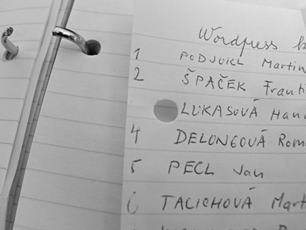 Wordpress
1 PODJUKL Martin
2 ŠPAČEK Franti
LUKASOVÁ Hana
4 DELONGOVÁ Rom
5 PECL Jan
TALICHOVÁ Mart